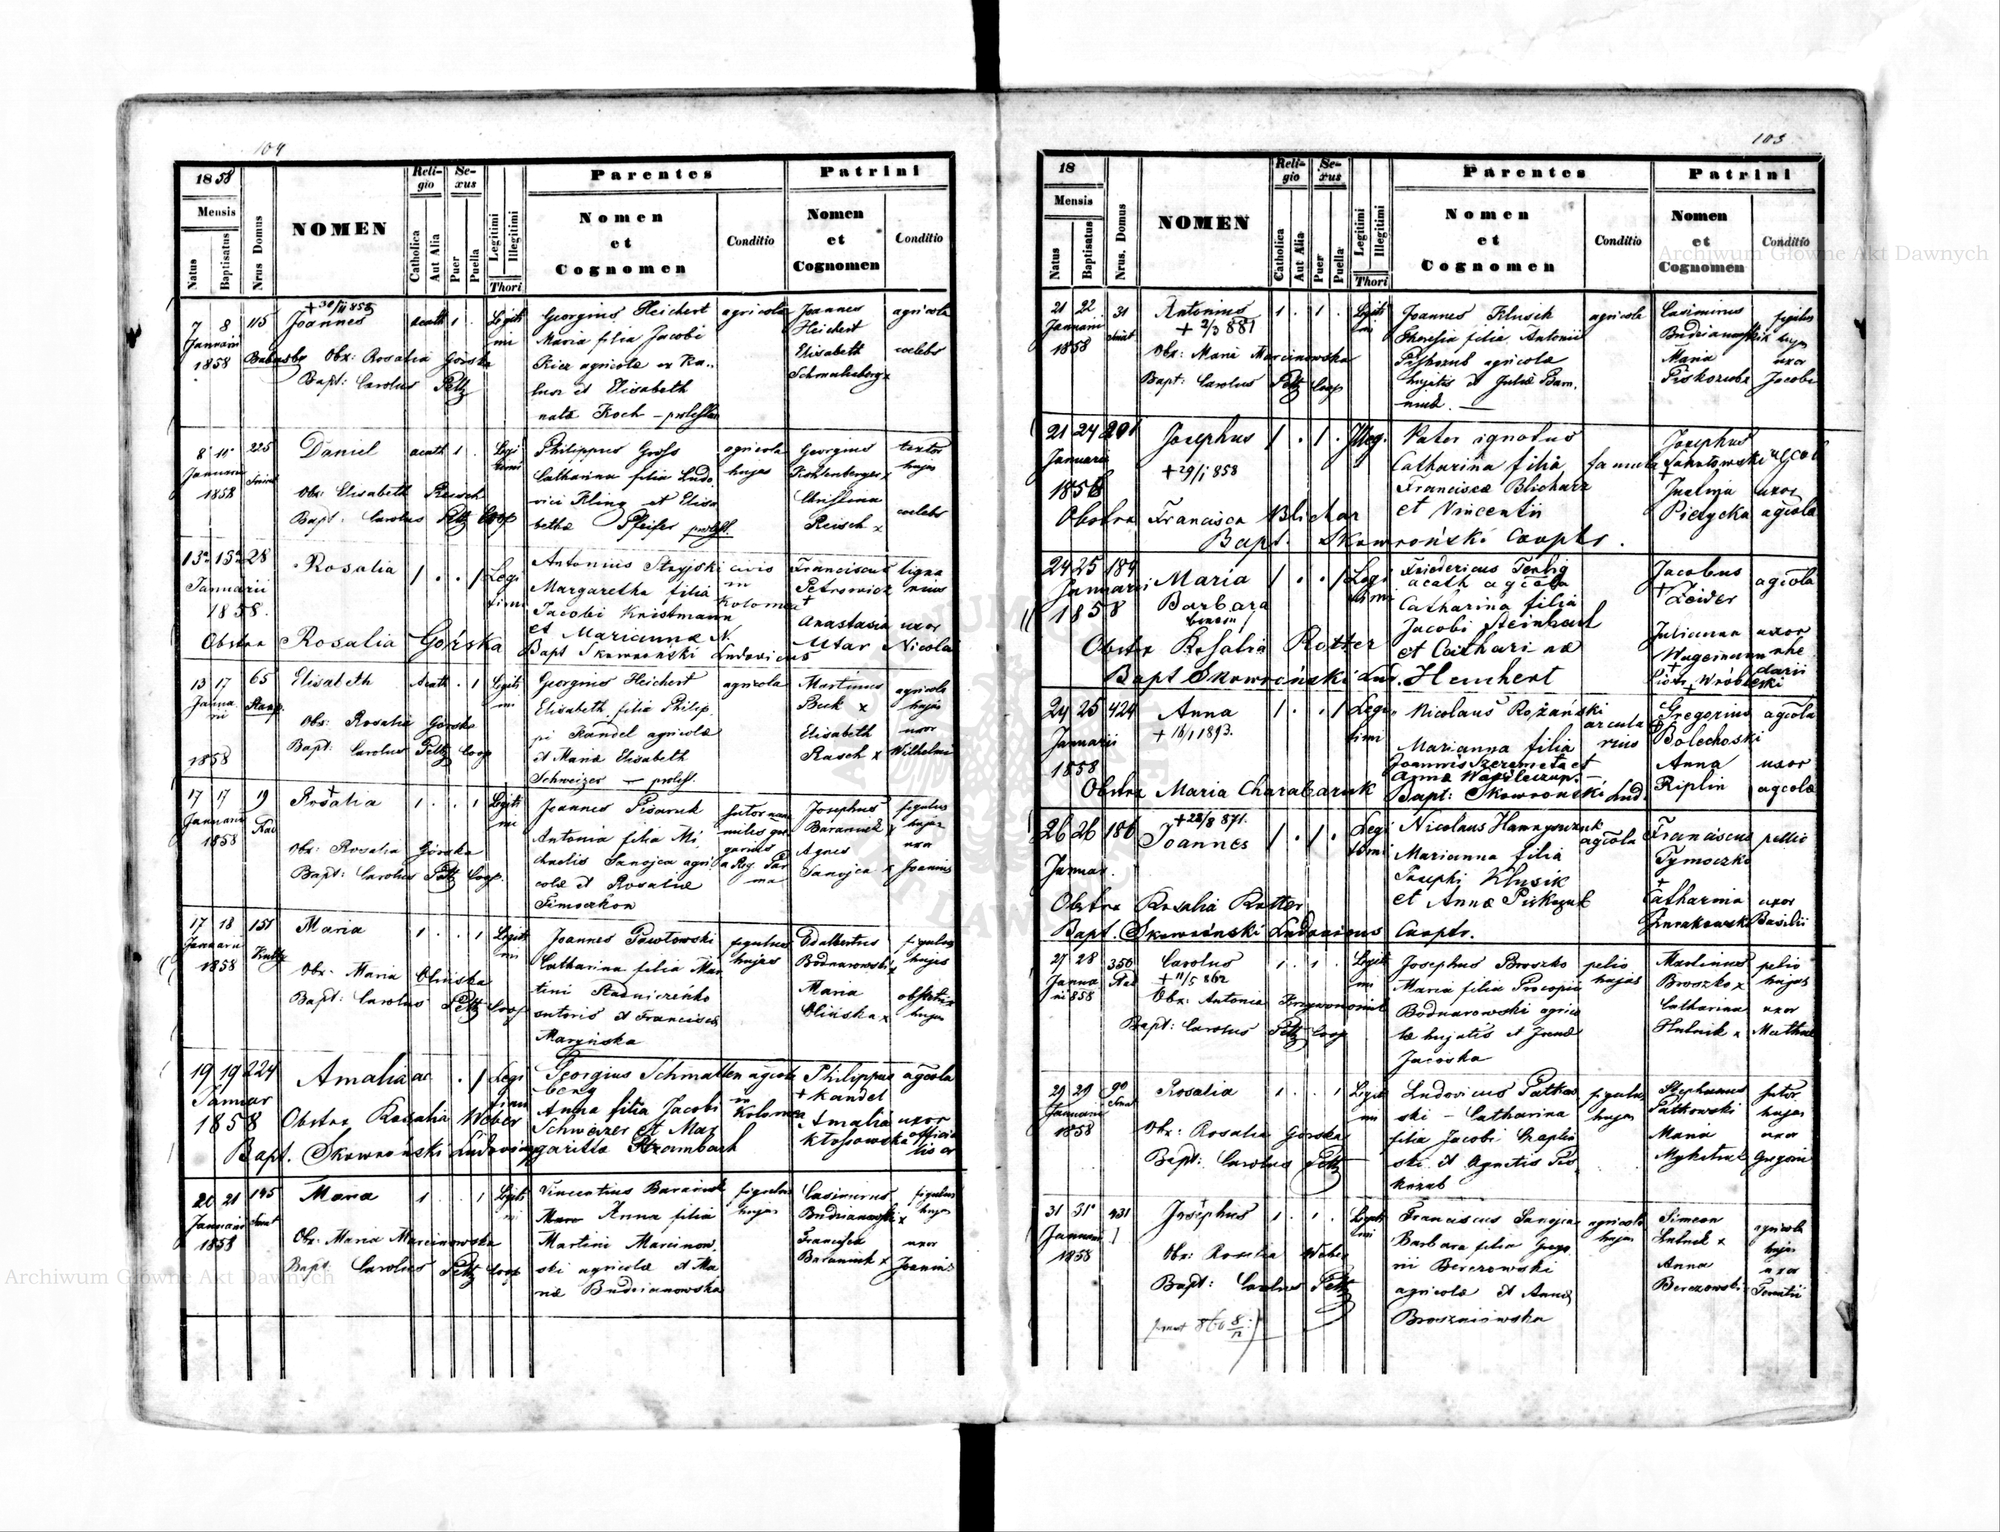 104
1858
Mensis
Natus
Baptisatus
Nrus Domus
NOMEN
Reli-
gio
Catholica
Aut Alia
Se-
xus
Puer
Puella
Legitimi
Illegitimi
Thori
Parentes
Nomen
et
Cognomen
Conditio
Patrini
Nomen
et
Cognomen
Conditio
7 8 115
Januarii
1858
Joannes
Obx: Rosalia Górska
Bapt: Carolus Petz
acath 1 .
Legiti
mi
Georgius Heichert
Maria filia Jacobi
agricolæ ex Ka..
et Elisabeth
natæ Koch
agricola
Joannes
Heichert
Elisabeth
agricola
coelebs
8 11 225
Januarii
1858
Daniel
Obx: Elisabeth Reisch
Bapt: Carolus Petz Coop
acath 1 .
Legi
timi
Philippus Gross
Catharina filia Ludo
vici Kling et Elisa
bethæ Pfeifer protest.
agricola
hujas
Georgius
Christina
Reisch x
textor
hujas
coelebs
13 15 28
Januarii
1858.
Rosalia
1 . . 1
Legi
timi
Obstrx Rosalia Gorska
Antonius Stryjski
Margaretha filia
Jacobi Kristmann
et Marianna N.
Bapt Skowroński Ludovicus
civis
in
Kolomea
Franciscus
Petrowicz
+
Anastasia
Utar
ligna
rius
uxor
Nicolai
13 17 65
Janua
rii
1858
Elisabeth
Obx: Rosalia Górska
Bapt: Carolus Petz Coop
Acath . 1
Legiti
mi
Georgius Heichert
Elisabeth filia Philip
pi Kandel agricolæ
et Mariæ Elisabeth
Schweizer — protest.
agricola
Martinus
Buk x
Elisabeth
Rasch x
agricola
hujas
uxor
Wilhelmi
17 17 19
Januarii
1858
Rosalia
Obx: Rosalia Górska
Bapt: Carolus Petz Coop.
1 . . 1
Legiti
mi
Joannes Pisaruk
Antonia filia Mi
chaelis Sanojca agri
colæ et Rosaliæ
Timoczkow
Josephus
Baraniuk x
Agnes
Sanojca x
figulus
hujas
uxor
Joannis
17 18 151
Januarii
1858
Maria
Obx: Maria Olinska
Bapt: Carolus Petz Coop
1 . . 1
Legiti
mi
Joannes Pawtowski
Catharina filia Mar
tini Stadniczeńko
sutoris et Franciscæ
Maryńska
figulus
hujas
Edalbertus
Bodnarowski x
Maria
Olińska x
figulus
hujas
obstetrix
hujas
19 19 224
Januar
1858
Amalia ac . 1
Legi
timi
Obstrx Rosalia Weber
Bapt. Skowroński Ludovicus
Georgius Schmallen
berg
Anna filia Jacobi
Schweizer et Mar
garitta Strombach
agicola
in
Kolomea
Philippus
+ Kandel
Amalia
Klossowska
agicola
uxor
officia
lis
20 21 145
Januarii
1858
Maria
Obx: Maria Marcinowska
Bapt: Carolus Petz Coop
1 . . 1
Legiti
mi
Vincentius Baraniuk
Anna filia
Martini Marcinow
ski agricolæ et Ma
riæ Budzianowska
figulus
hujas
Casimirus
Budzianowski x
Francisca
Baraniuk x
figulus
hujas
uxor
Joannis
103
18
Mensis
Natus
Baptisatus
Nrus. Domus
NOMEN
Reli-
gio
Catholica
Aut Alia
Se-
xus
Puer
Puella
Legitimi
Illegitimi
Thori
Parentes
Nomen
et
Cognomen
Conditio
Patrini
Nomen
et
Cognomen
Conditio
21 22 31
Januarii
1858
Antonius
+ 2/3 881
Obx: Maria Marcinowska
Bapt: Carolus Petz Coop
1 . 1 .
Legiti
mi
Joannes Klusik
Theresia filia Antonii
Piskozub agricolæ
hujatis et Juliæ Bara
niuk. —
agricola
Casimirus
Budzianowski x
Maria
Piskozube
figulus
hujas
uxor
Jacobi
21 24 201
Januarii
1858
Josephus
+ 29/1 858
1 . 1 . Illeg.
Obstrx Francisca Blichar
Bapt. Skowroński Cooptr.
Pater ignotus
Catharina filia
Franciscæ Blicharz
et Vincentii
famula
Josephus
+
Justina
Pietycka
agicol
uxor
agicola
24 25 184
Januarii
1858
Maria
Barbara
1 . . 1
Legi
timi
Obstrx Rosalia Rotter
Bapt Skowroński Lud.
Friedericus Terbig
acath agicola
Catharina filia
Jacobi Steinhart
et Catharinæ
Henhert
Jacobus
+ Zeider
Julianna
Wagemann
agicola
uxor
24 25 424
Januarii
1858
Anna
+ 16/1 1893.
1 . . 1
Legi
timi
Obstrx Maria Charabaruk
Nicolaus Rożański
Marianna filia
Joannis Szeremeta et
Bapt: Skowroński Lud
arcula
rius
Gregorius
Bolechoski
Anna
Riplin
agicola
uxor
agicolæ
26 26 186
Januar.
+ 28/8 871.
Joannes
1 . 1 .
Legi
timi
Obstrx Rosalia Rotter
Bapt. Skowroński Ludovicus Cooptr.
Marianna filia
Josephi Klusik
et Annæ Piskozub
agicola
Franciscus
Tymoczko
+
Catharina
Żurakowska
pellio
uxor
Basilii
27 28 350
Janua
rii 858
Carolus
+ 11/5 862
Obx: Antonia
Bapt: Carolus Petz Coop
1 . 1 .
Legiti
mi
Josephus Broszko
Maria filia Procopii
Bodnarowski agrico
læ hujatis et Juniæ
Jacoska
pelio
hujas
Martinus
Broszko x
Catharina
Hutnik x
pelio
hujas
uxor
Mathiæ
29 29 90
Januarii
1858
Rosalia
Obx: Rosalia Górska
Bapt: Carolus Petz
1 . . 1
Legiti
mi
Ludovicus Patkow
ski — Catharina
filia Jacobi Czaplin
ski et Agnetis Pis
kozub
figulus
hujas
Stephanus
Patkowski
Maria
sutor
hujas
uxor
Gregorii
31 31 431
Januarii
1858
Josephus
Obx: Rosalia Weber
Bapt: Carolus Petz
1 . 1 .
Legiti
mi
Franciscus Sanojca
Barbara filia Grego
rii Berezowski
agricolæ et Annæ
Broszniowska
agricola
hujas
Simeon
Hutnik x
Anna
Berezowski
agricola
hujas
uxor
Archiwum Główne Akt Dawnych
Archiwum Główne Akt Dawnych